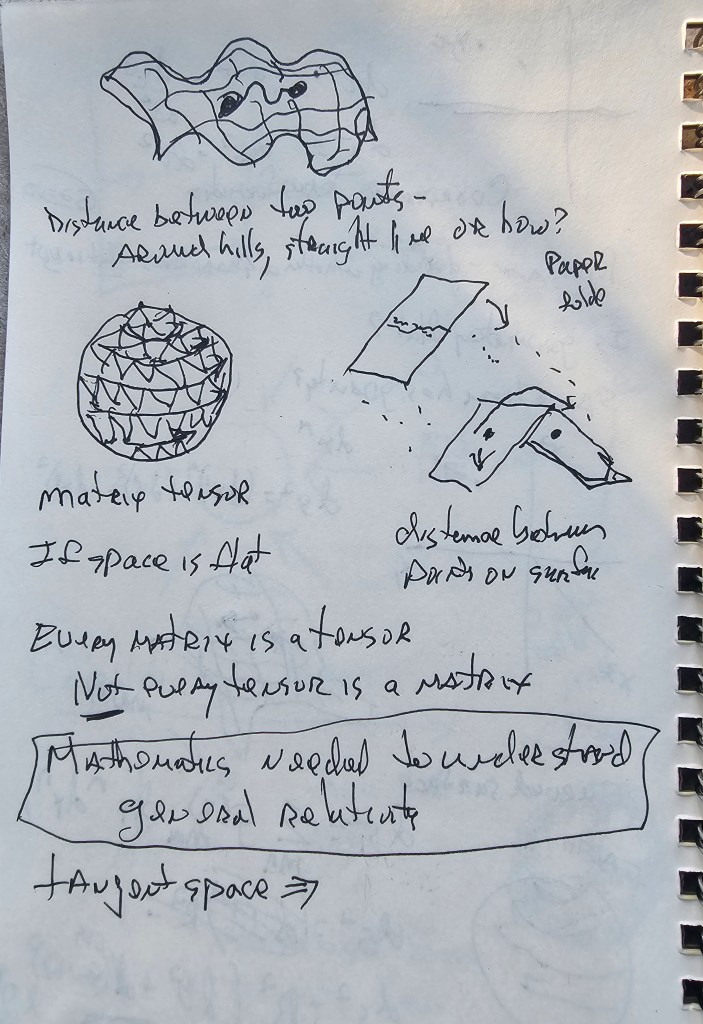 Distance between two points -
Around hills, straight line or how?
Paper
folds
matrix tensor
If space is flat
distance between
points on surface
Every matrix is a tensor
Not every tensor is a matrix
Mathematics needed to understand
general relativity
tangent space ⇒